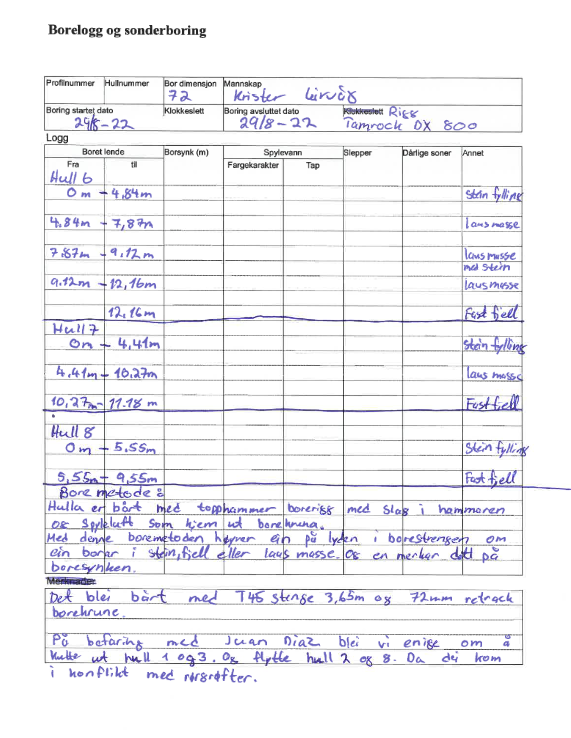 Borelogg og sonderboring
Profilnummer Hullnummer Bor dimensjon Mannskap
72 Krister
Boring startet dato Klokkeslett Boring avsluttet dato Klokkeslett Rigg
29/8-22 29/8-22 Tamrock DX 800
Logg
Boret lende Borsynk (m) Spylevann Slepper Dårlige soner Annet
Fra til Fargekarakter Tap
Hull 6
0 m - 4,84m Stein fylling
4,84m - 7,87m laus masse
7.87m - 9,12m laus masse
med stein
9.12m - 12,16m laus masse
12,16m Fast fjell
Hull 7
0m - 4,41m Stein fylling
4,41m - 10,27m laus masse
10,27m - 11.18 m Fast fjell
Hull 8
0m - 5,55m Stein fylling
5,55m - 9,55m Fast fjell
Bore metode:
Hulla er bårt med topphammer borerigg med slag i hammaren
og spyleluft som kjem ut borekruna.
Med denne boremetoden høyrer ein på lyden i borestrengen om
ein borar i stein, fjell eller laus masse. Og en merkar det på
boresynken.
Merknader
Det blei bårt med T45 stenge 3,65m og 72mm retrack
borekrune.
På befaring med Juan Diaz blei vi enige om å
kutte ut hull 1 og 3. Og flytte hull 2 og 8. Da dei kom
i konflikt med rørgrøfter.